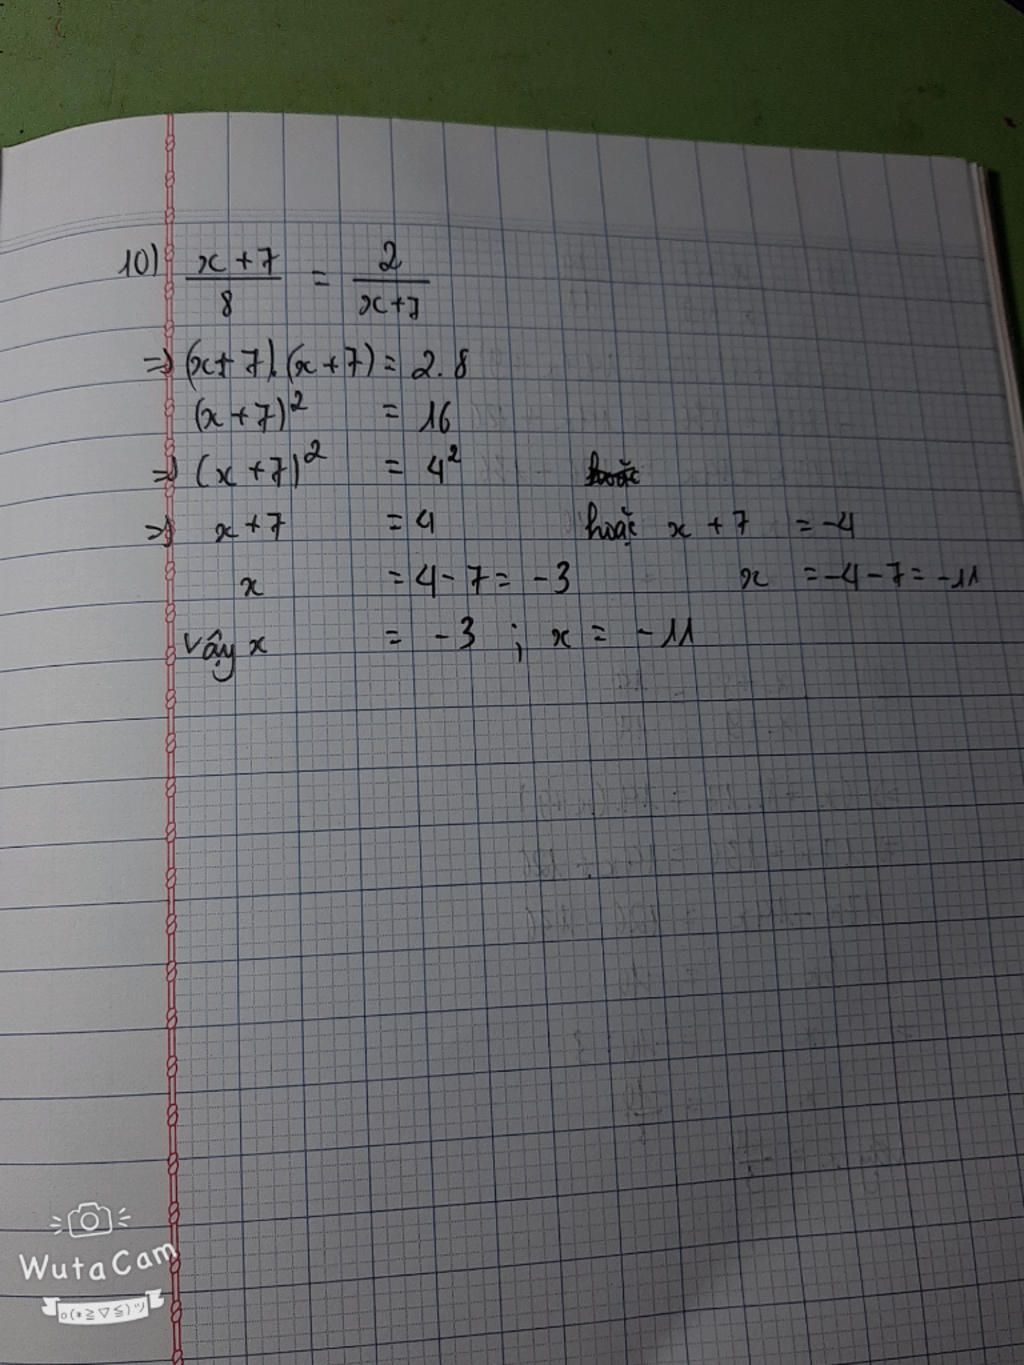 10) x+7/8 = 2/x+7
=> (x+7).(x+7) = 2.8
(x+7)² = 16
=> (x+7)² = 4²
=> x+7 = 4 hoặc x+7 = -4
x = 4-7 = -3 x = -4-7 = -11
Vậy x = -3 ; x = -11
WutaCam
o(*≧▽≦)ツ